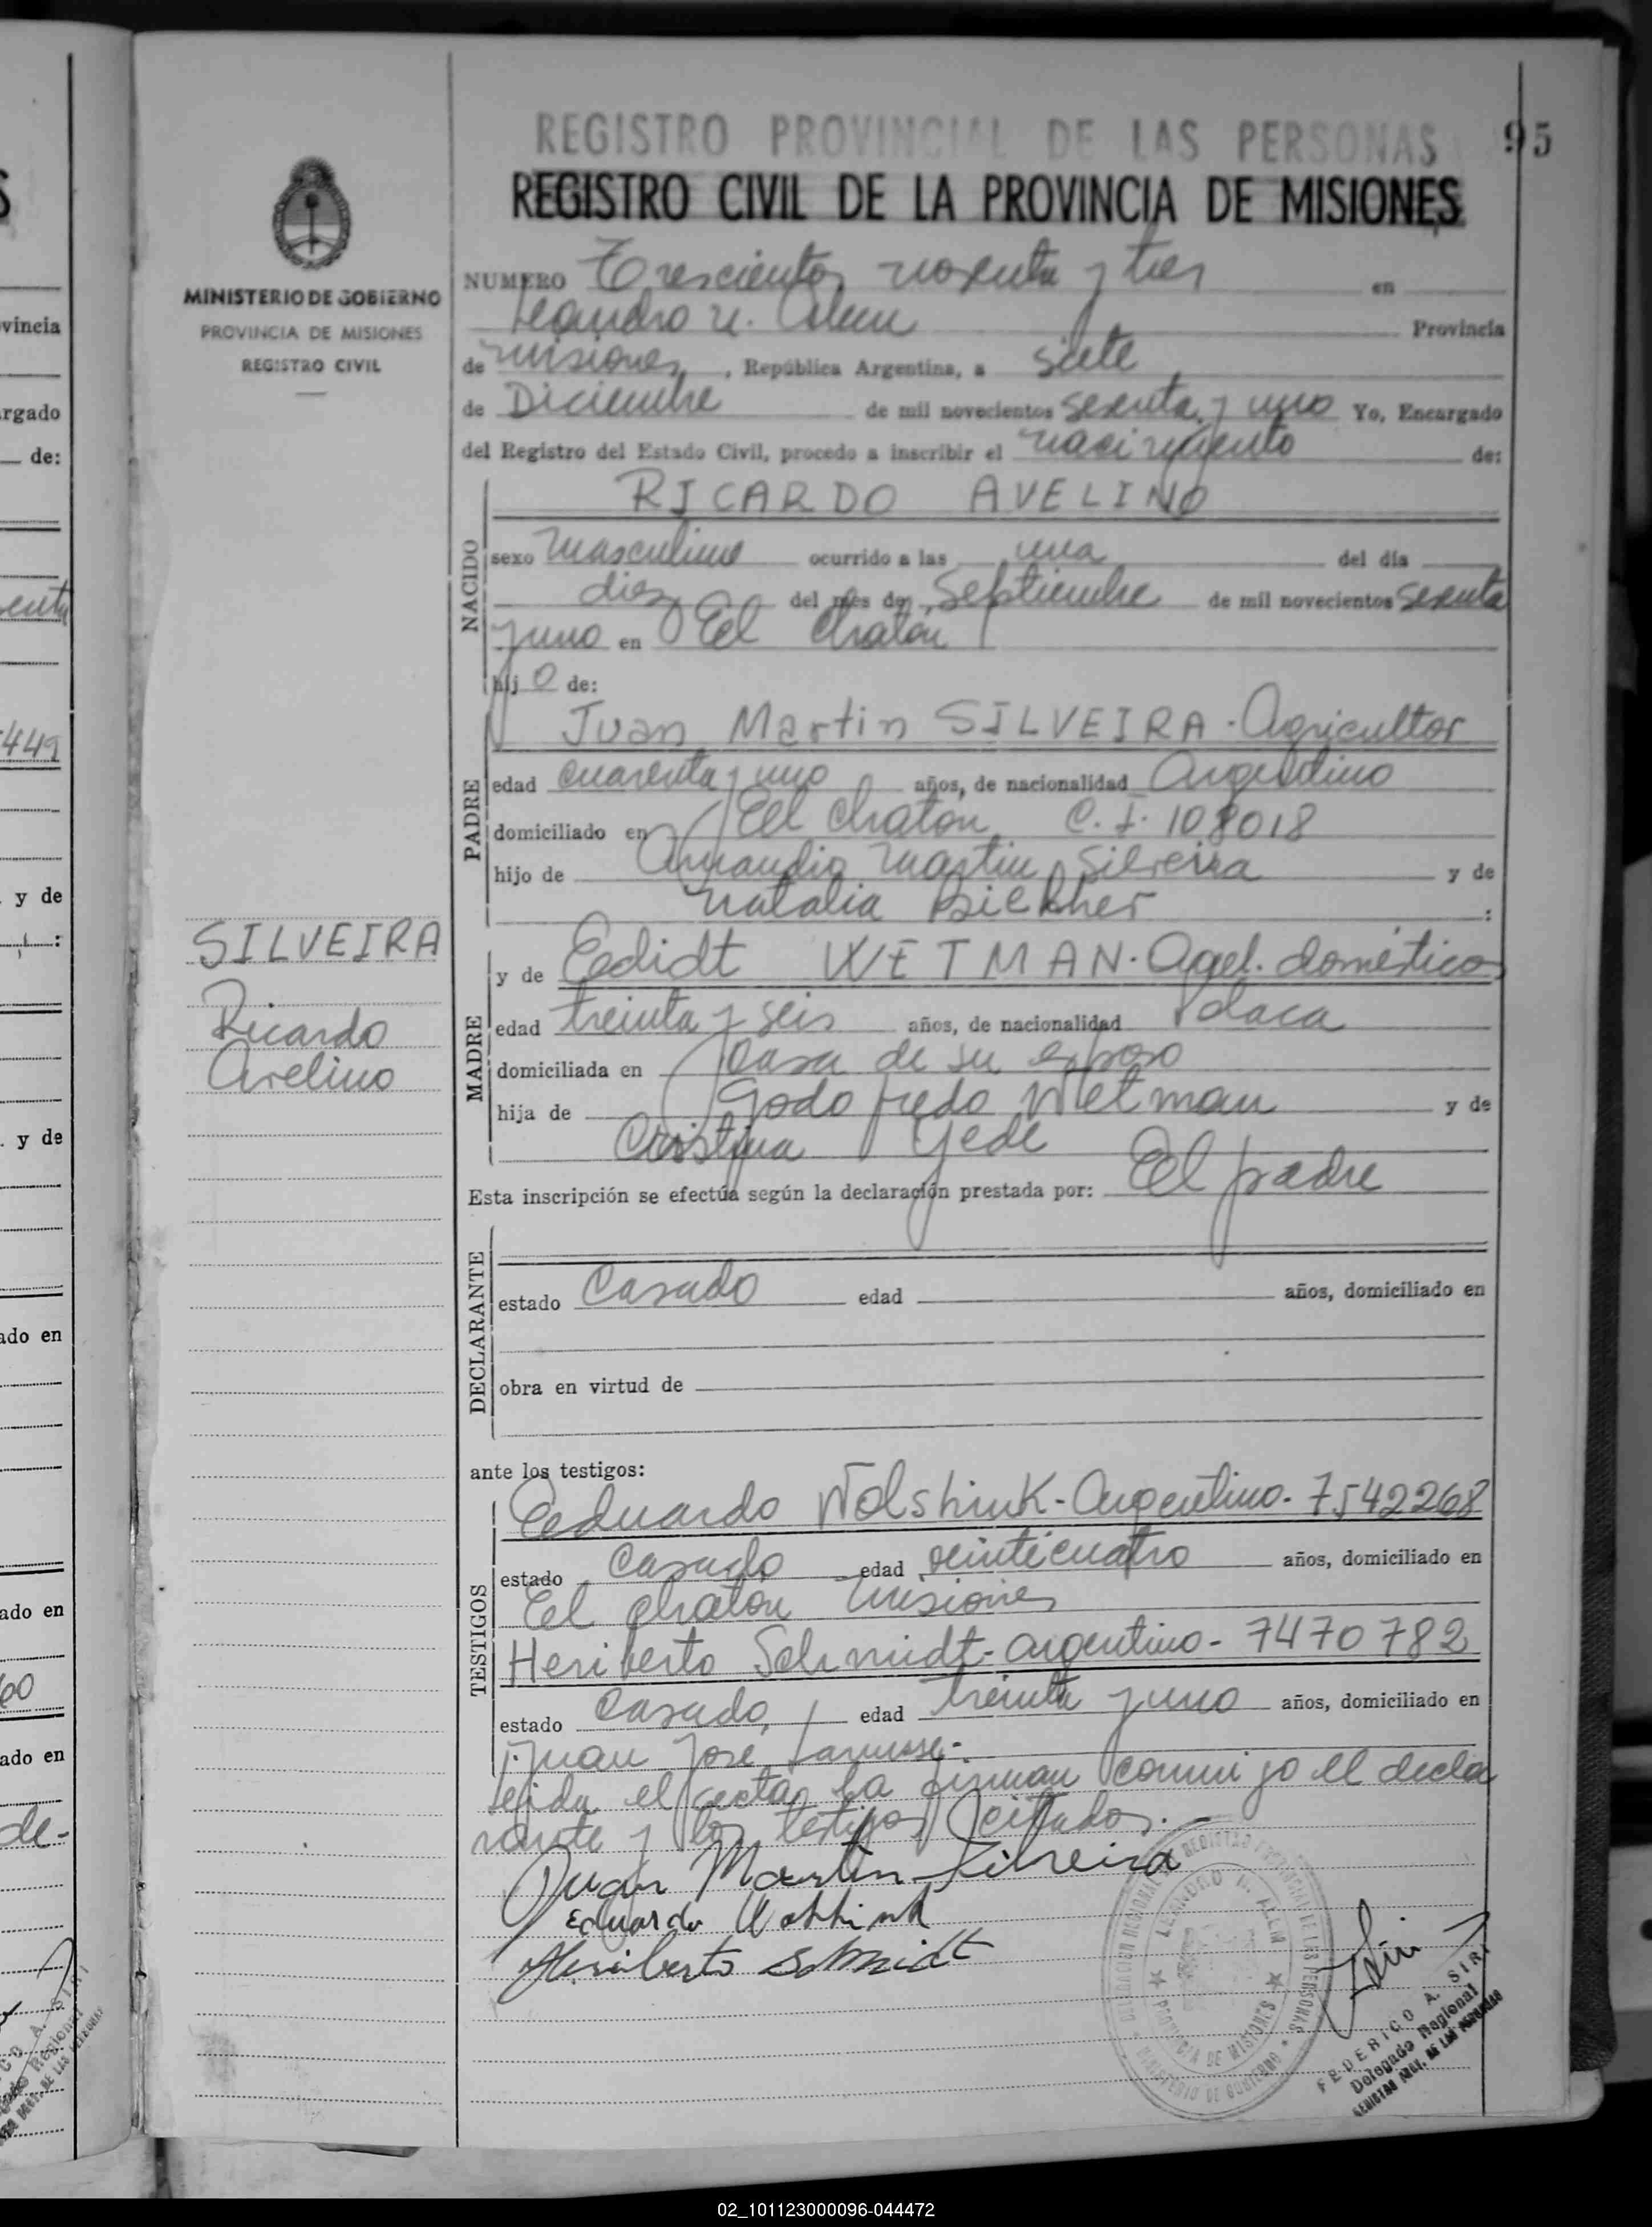 REGISTRO PROVINCIAL DE LAS PERSONAS 95
REGISTRO CIVIL DE LA PROVINCIA DE MISIONES
MINISTERIO DE GOBIERNO
PROVINCIA DE MISIONES
REGISTRO CIVIL
NUMERO Trescientos noventa y tres en
Leandro N. Alem Provincia
de Misiones, República Argentina, a siete
de Diciembre de mil novecientos sesenta y uno Yo, Encargado
del Registro del Estado Civil, procedo a inscribir el nacimiento de:
NACIDO
RICARDO AVELINO
sexo Masculino ocurrido a las una del día
diez del mes de Septiembre de mil novecientos sesenta
y uno en El Chatón
hijo de:
PADRE
Juan Martin SILVEIRA - Agricultor
edad cuarenta y uno años, de nacionalidad Argentino
domiciliado en El Chatón C. I. 108018
hijo de Martin Silveira y de
Natalia :
SILVEIRA
Ricardo
Avelino
MADRE
y de Eedidt WETMAN - Qel. doméstico
edad treinta y seis años, de nacionalidad Polaca
domiciliada en Casa de su esposo
hija de Godofredo Wetman y de
Cristina Yede
Esta inscripción se efectúa según la declaración prestada por: El padre
DECLARANTE
estado Casado edad años, domiciliado en
obra en virtud de
ante los testigos:
TESTIGOS
Eduardo Wolshink - Argentino - 7542268
estado Casado edad veinticuatro años, domiciliado en
El Chatón Misiones
Heriberto Schmidt - argentino - 7470782
estado Casado, edad treinta y uno años, domiciliado en
Juan José Lanusse.-
Leida el acta la firman conmigo el decla
rante y los testigos citados.-
Juan Martin Silveira
Eduardo
Heriberto Schmidt
DELEGACION REGIONAL DEL REGISTRO PROVINCIAL DE LAS PERSONAS
LEANDRO N. ALEM
PROVINCIA DE MISIONES
FEDERICO A. SIRI
Delegado Regional
REGISTRO PROV. DE LAS PERSONAS
vincia
argado
de:
449
y de
y de
ado en
ado en
60
ado en
de-
02_101123000096-044472